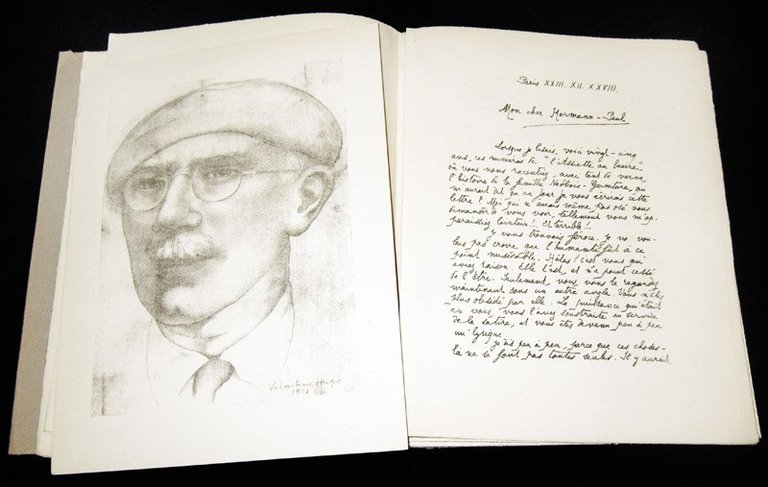 Valentine Hugo
1928
Paris XXIII. XII. XXVIII.
Mon cher Hermann-Paul
Lorsque je lisais, voici vingt-cinq
ans, ces numéros de "l'Assiette au beurre"
où vous nous racontiez, avec tant de verve,
l'histoire de la famille
m'aurait dit qu'un jour je vous écrirais cette
lettre? Moi qui n'aurais même pas osé vous
demander à vous voir, tellement vous m'ap-
paraissiez lointain... et terrible!
Je vous trouvais féroce. Je ne vou-
lais pas croire que l'humanité fût à ce
point misérable. Hélas! c'est vous qui
aviez raison. Elle l'est, et n'a point cessé
de l'être. Seulement, vous vous la regardez
maintenant sous un autre angle. Vous n'êtes
plus obsédé par elle. La puissance qui était
en vous, vous l'avez soustraite au service
de la satire, et vous êtes devenu peu à peu
un lyrique.
Je dis peu à peu, parce que ces choses-
là ne se font pas toutes seules. Il y aurait